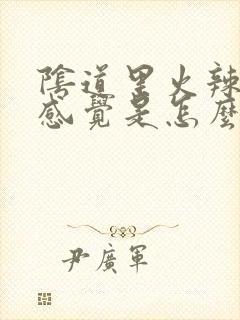 陰道里火辣
感覺是怎麼
尹廣軍